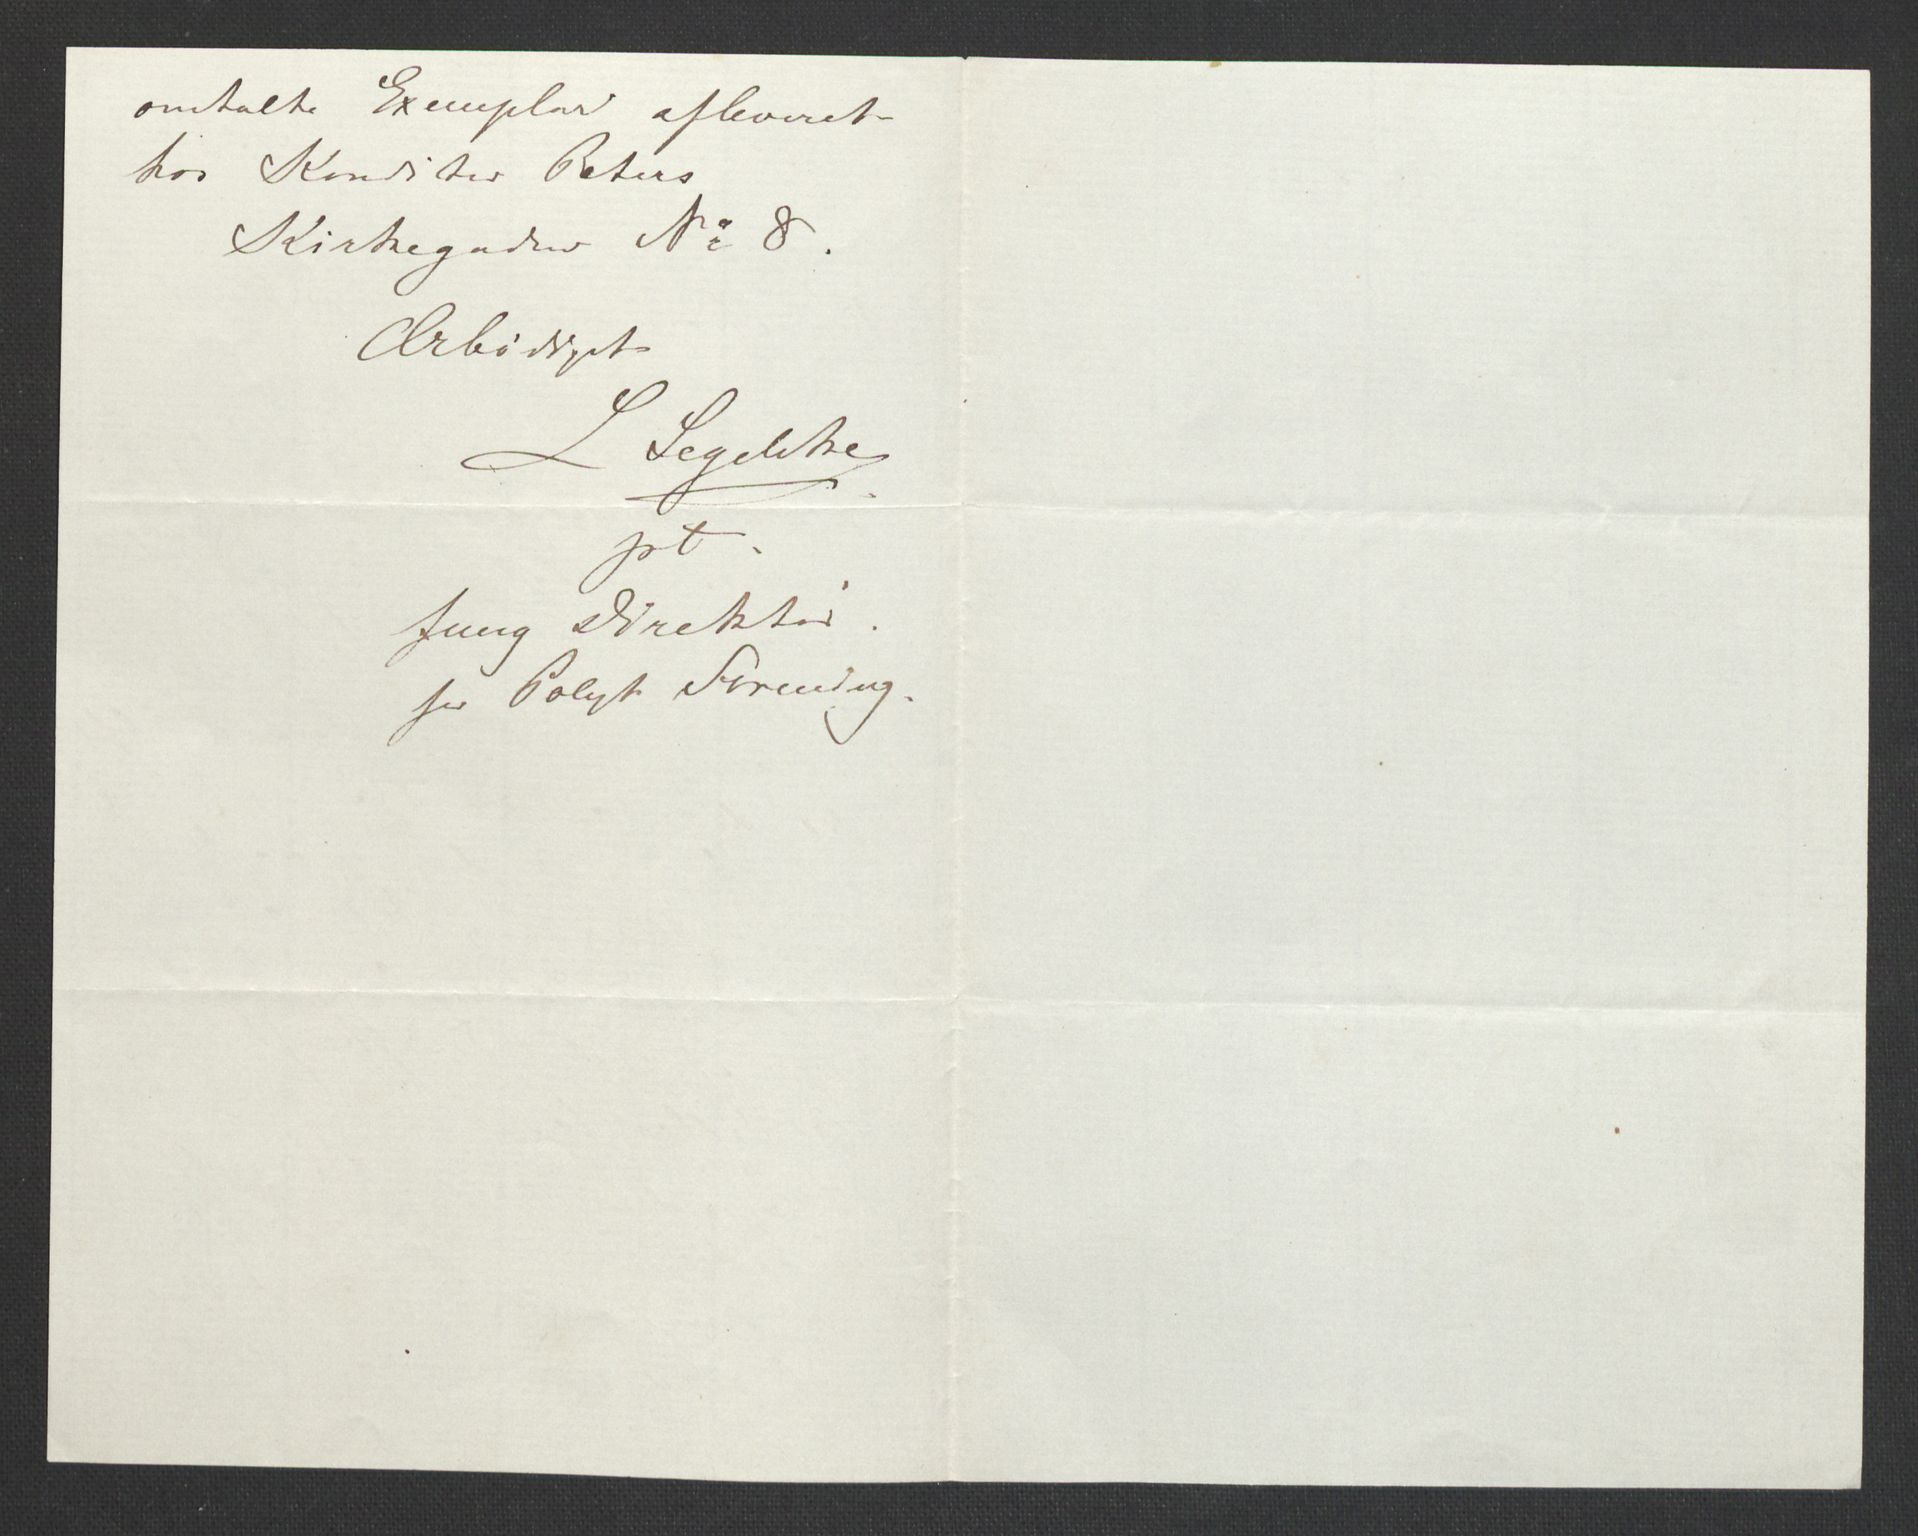 omtalte Exemplar afleveret
hos Konditor Peters
Kirkegaden No 8.
Ærbödigst
L Segelcke
pt.
fung Direktör.
for Polyt Forening.